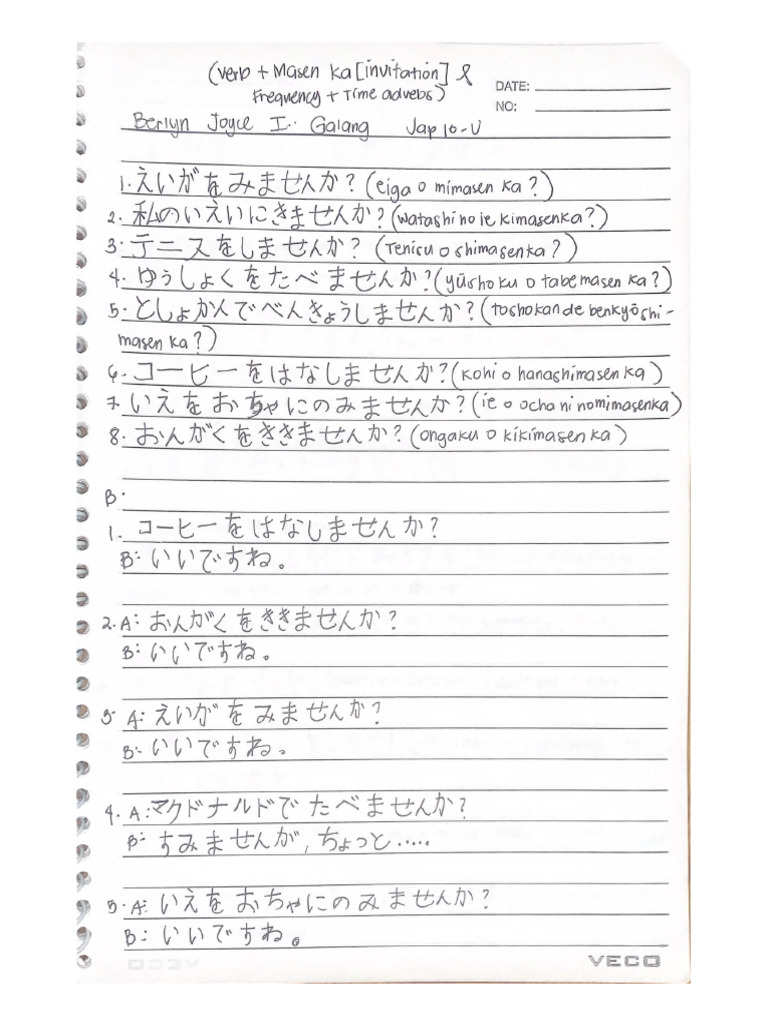 (verb + Masen ka [invitation] &
Frequency + Time adverbs)
DATE:
NO:
Berlyn Joyce I. Galang Jap 10-U
1. えいがをみませんか? (eiga o mimasen ka?)
2. 私のいえいにきませんか? (watashi no ie kimasenka?)
3. テニスをしませんか? (Tenisu o shimasenka?)
4. ゆうしょくをたべませんか? (yūshoku o tabemasen ka?)
5. としょかんでべんきょうしませんか? (toshokan de benkyōshi-
masen ka?)
6. コーヒーをはなしませんか? (kohi o hanashimasen ka)
7 いえをおちゃにのみませんか? (ie o ocha ni nomimasenka)
8. おんがくをききませんか? (ongaku o kikimasen ka)
B.
1. コーヒーをはなしませんか?
B: いいですね。
2. A: おんがくをききませんか?
B: いいですね。
3. A: えいがをみませんか?
B: いいですね。
4. A: マクドナルドでたべませんか?
B: すみませんが, ちょっと.....
5. A: いえをおちゃにのみませんか?
B: いいですね。
VECO